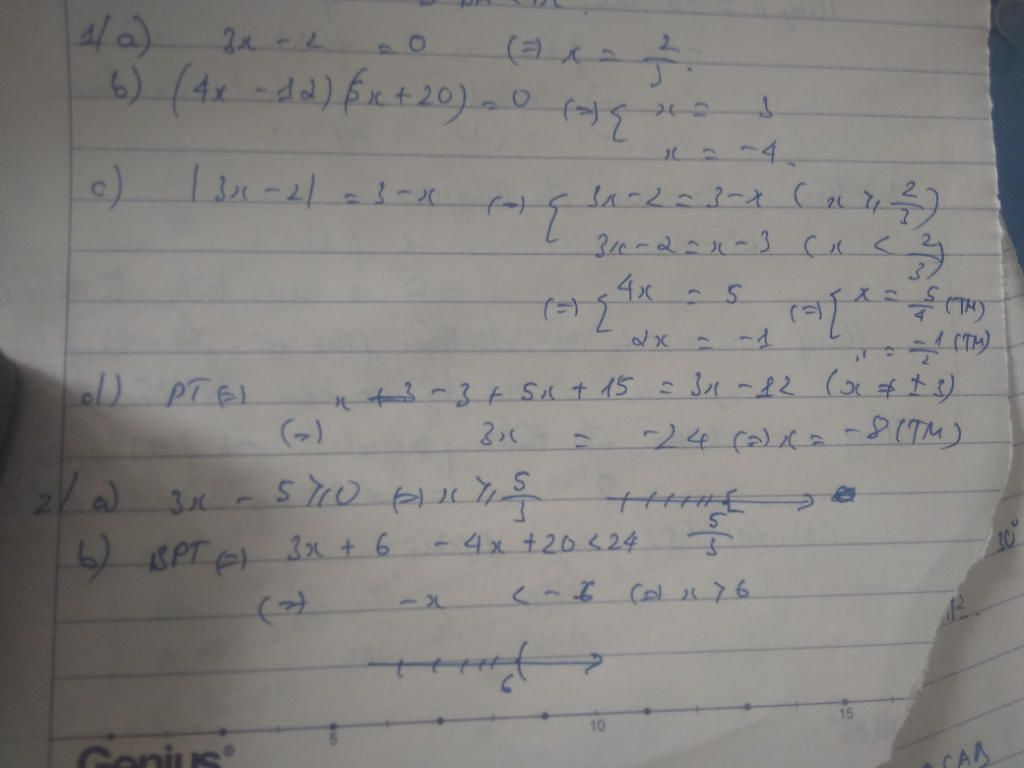 1/ a) 3x - 2 = 0 (=) x = 2/3.
b) (4x - 12)(5x + 20) = 0 (=) { x = 3
x = -4.
c) |3x - 2| = 3 - x (=) { 3x - 2 = 3 - x (x ≥ 2/3)
3x - 2 = x - 3 (x < 2/3)
(=) { 4x = 5 (=) { x = 5/4 (TM)
2x = -1 x = -1/2 (TM)
d) PT (=) x - 3 + 5x + 15 = 3x - 12 (x ≠ ± 3)
(=) 3x = -24 (=) x = -8 (TM)
2/ a) 3x - 5 ≥ 0 (=) x ≥ 5/3 [
5/3
b) BPT (=) 3x + 6 - 4x + 20 < 24
30°
(=) -x < -6 (=) x > 6
(
6
5 10 15
Genius®
CAB